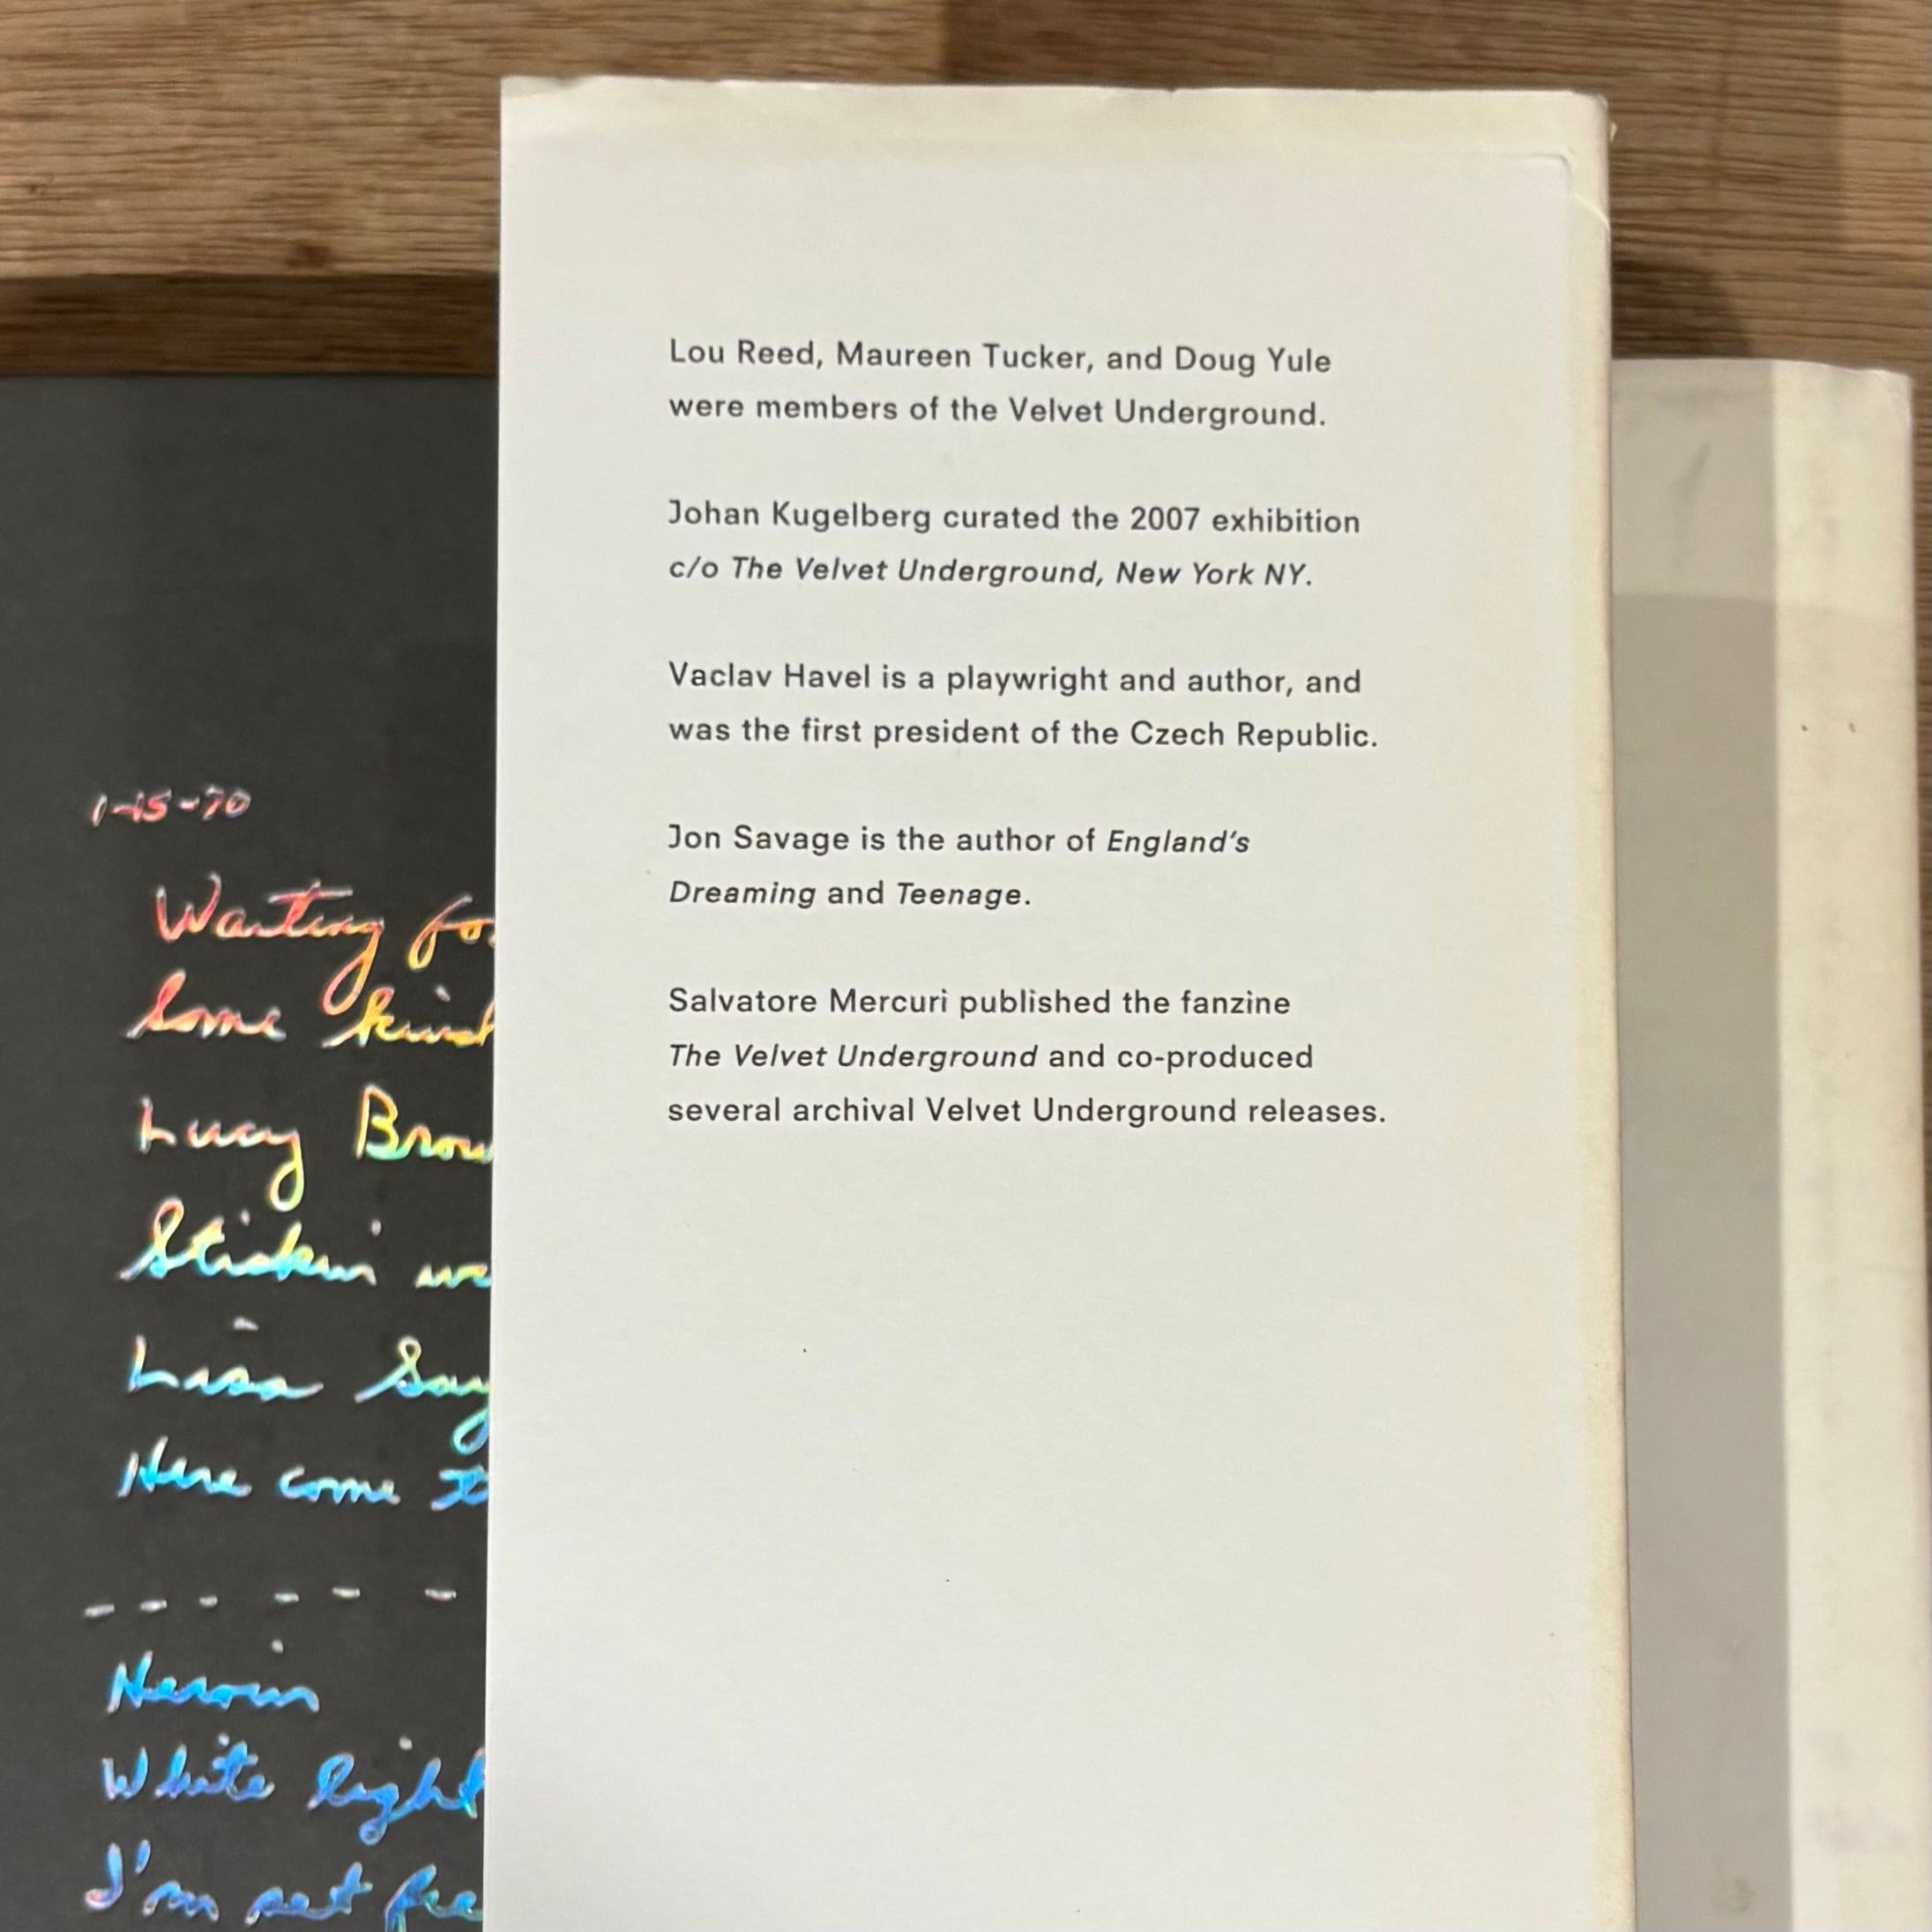 Lou Reed, Maureen Tucker, and Doug Yule
were members of the Velvet Underground.
Johan Kugelberg curated the 2007 exhibition
c/o The Velvet Underground, New York NY.
Vaclav Havel is a playwright and author, and
was the first president of the Czech Republic.
Jon Savage is the author of England's
Dreaming and Teenage.
Salvatore Mercuri published the fanzine
The Velvet Underground and co-produced
several archival Velvet Underground releases.
1-15-70
Waiting fo
Some kind
Lucy Brow
Stickin'
Lisa Say
Here come
- - - - - -
Heroin
White light
I'm set fre